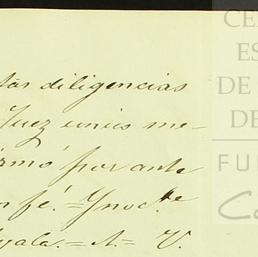 tas diligencias
Juez únicó me-
irmó por ante
n fé. = Ynoc.te
yala. = A. = V.
CE
ES
DE
DE
FU
C